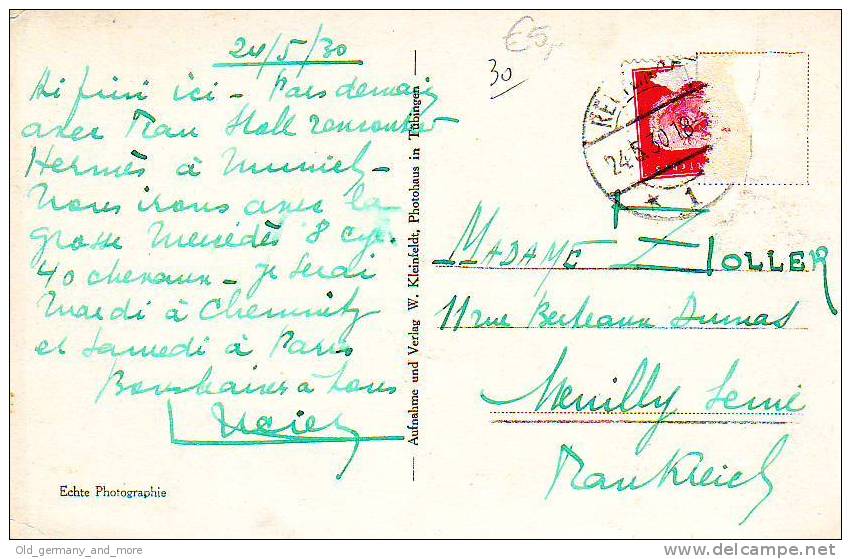 24/5/30
Ai fini ici - Pars demain
avec Frau Stoll rencontrer
Hermès à Munich -
Nous irons avec la
grosse Mercédès 8 cyl.
40 chevaux - Je serai
mardi à Chemnitz
et samedi à Paris
Bons baisers à tous
Lucien
Echte Photographie
Aufnahme und Verlag W. Kleinfeldt, Photohaus in Tübingen
€5,-
30
24.5.30.18
* 1
MADAME ZOLLER
11 rue Berteaux Dumas
Neuilly Seine
Frankreich
Old_germany_and_more
delcampe.net